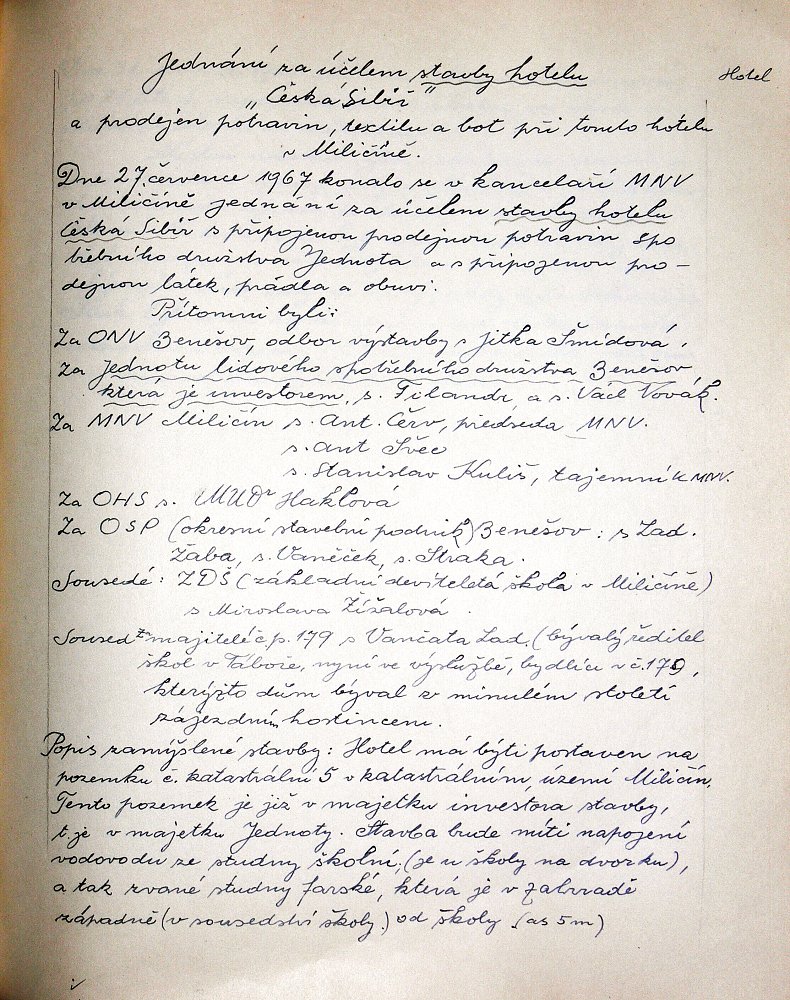 Jednání za účelem stavby hotelu
Hotel
"Česká Sibiř"
a prodejen potravin, textilu a bot při tomto hotelu
v Miličíně.
Dne 27. července 1967 konalo se v kanceláři MNV
v Miličíně jednání za účelem stavby hotelu
Česká Sibiř s připojenou prodejnou potravin spo
třebního družstva Jednota a s připojenou pro-
dejnou látek, prádla a obuvi.
Přítomni byli:
Za ONV Benešov, odbor výstavby s Jitka Šmídová.
Za Jednotu lidového spotřebního družstva Benešov
která je investorem, s. Filandr a s. Václ Novák.
Za MNV Miličín s. Ant. Červ, předseda MNV.
s. Ant Švec
s. Stanislav Kuliš, tajemník MNV.
Za OHS s. MUDr Haklová
Za OSP (okresní stavební podnik) Benešov: s Lad.
Žaba, s. Vaněček, s. Straka.
Sousedé: ZDŠ (základní devítiletá škola v Miličíně)
s Miroslava Žížalová.
Soused majitel č p. 179 s Vančata Lad. (bývalý ředitel
škol v Táboře, nyní ve výslužbě, bydlící v č. 179,
kterýžto dům býval v minulém století
zájezdním hostincem.
Popis zamýšlené stavby: Hotel má býti postaven na
pozemku č. katastrální 5 v katastrálním území Miličín.
Tento pozemek je již v majetku investora stavby,
t. je v majetku Jednoty. Stavba bude míti napojení
vodovodu ze studny školní, (je u školy na dvorku),
a tak zvané studny farské, která je v zahradě
západně (v sousedství školy.) od školy (as 5 m)